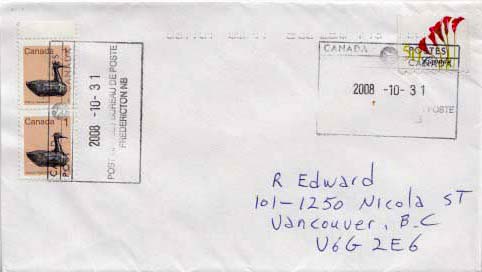 Canada
1
Canada
1
CANADA
POSTES
2008 -10- 31
BUREAU DE POSTE
FREDERICTON NB
CANADA
POSTES
CANADA
2008 -10- 31
POSTE
R Edward
101-1250 Nicola ST
Vancouver, B.C
V6G 2E6